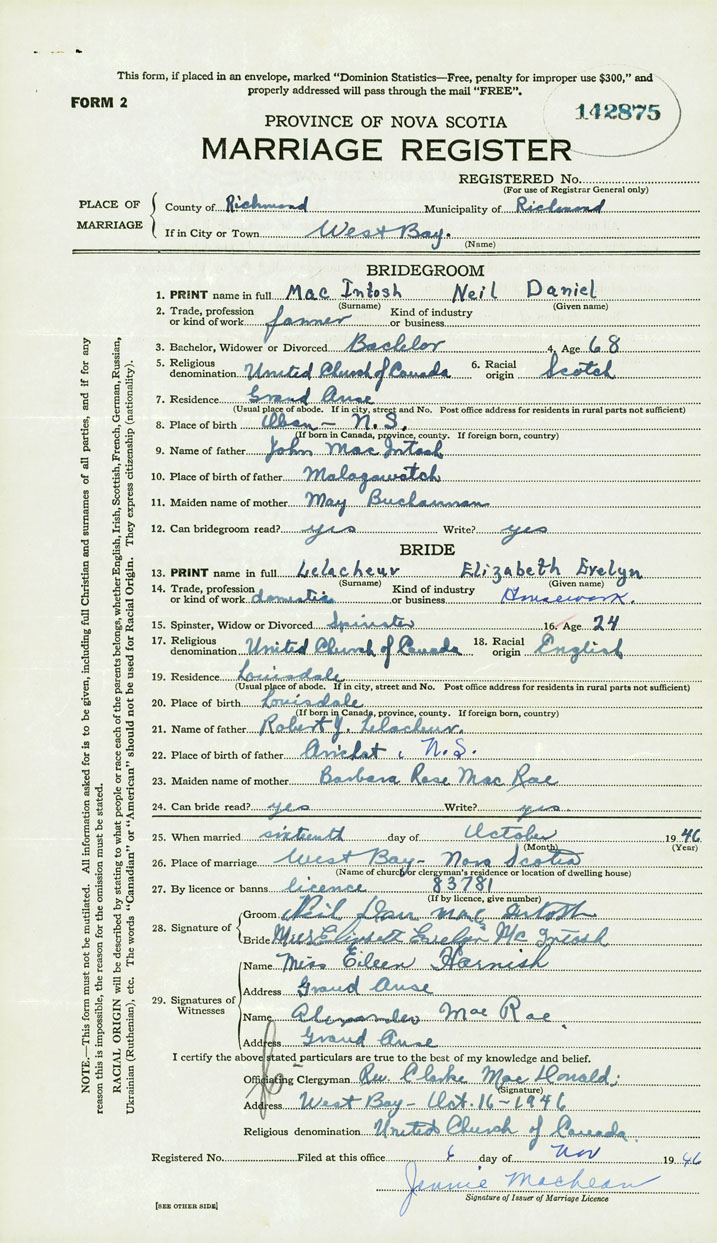 This form, if placed in an envelope, marked "Dominion Statistics—Free, penalty for improper use $300," and
properly addressed will pass through the mail "FREE".
FORM 2
142875
PROVINCE OF NOVA SCOTIA
MARRIAGE REGISTER
REGISTERED No.
(For use of Registrar General only)
PLACE OF MARRIAGE
County of Richmond Municipality of Richmond
If in City or Town West Bay.
(Name)
BRIDEGROOM
1. PRINT name in full Mac Intosh Neil Daniel
(Surname) (Given name)
2. Trade, profession or kind of work farmer Kind of industry or business
3. Bachelor, Widower or Divorced Bachelor 4. Age 68
5. Religious denomination United Church of Canada 6. Racial origin Scotch
7. Residence Grand Anse
(Usual place of abode. If in city, street and No. Post office address for residents in rural parts not sufficient)
8. Place of birth Oban — N.S.
(If born in Canada, province, county. If foreign born, country)
9. Name of father John Mac Intosh
10. Place of birth of father Malagawatch
11. Maiden name of mother May Buchannan
12. Can bridegroom read? yes Write? yes
BRIDE
13. PRINT name in full Lelacheur Elizabeth Evelyn
(Surname) (Given name)
14. Trade, profession or kind of work domestic Kind of industry or business Housework.
15. Spinster, Widow or Divorced Spinster 16. Age 24
17. Religious denomination United Church of Canada 18. Racial origin English
19. Residence Louisdale
(Usual place of abode. If in city, street and No. Post office address for residents in rural parts not sufficient)
20. Place of birth Louisdale
(If born in Canada, province, county. If foreign born, country)
21. Name of father Robert J. Lelacheur.
22. Place of birth of father Arichat, N.S.
23. Maiden name of mother Barbara Rose Mac Rae
24. Can bride read? yes Write? yes.
25. When married sixteenth day of October 1946
(Month) (Year)
26. Place of marriage West Bay - Nova Scotia
(Name of church or clergyman's residence or location of dwelling house)
27. By licence or banns licence 83781
(If by licence, give number)
28. Signature of
Groom Neil Dan mac Intosh
Bride Mrs Evelyn Mc Intosh
29. Signatures of Witnesses
Name Miss Eileen Harnish
Address Grand Anse
Name Alexander Mac Rae
Address Grand Anse
I certify the above stated particulars are true to the best of my knowledge and belief.
Officiating Clergyman Rev. Clarke Mac Donald;
(Signature)
Address West Bay - Oct. 16 - 1946
Religious denomination United Church of Canada
Registered No. Filed at this office 6 day of Nov 1946
Jennie MacLean
Signature of Issuer of Marriage Licence
[SEE OTHER SIDE]
NOTE.—This form must not be mutilated. All information asked for is to be given, including full Christian and surnames of all parties, and if for any
reason this is impossible, the reason for the omission must be stated.
RACIAL ORIGIN will be described by stating to what people or race each of the parents belongs, whether English, Irish, Scottish, French, German, Russian,
Ukrainian (Ruthenian), etc. The words "Canadian" or "American" should not be used for Racial Origin. They express citizenship (nationality).